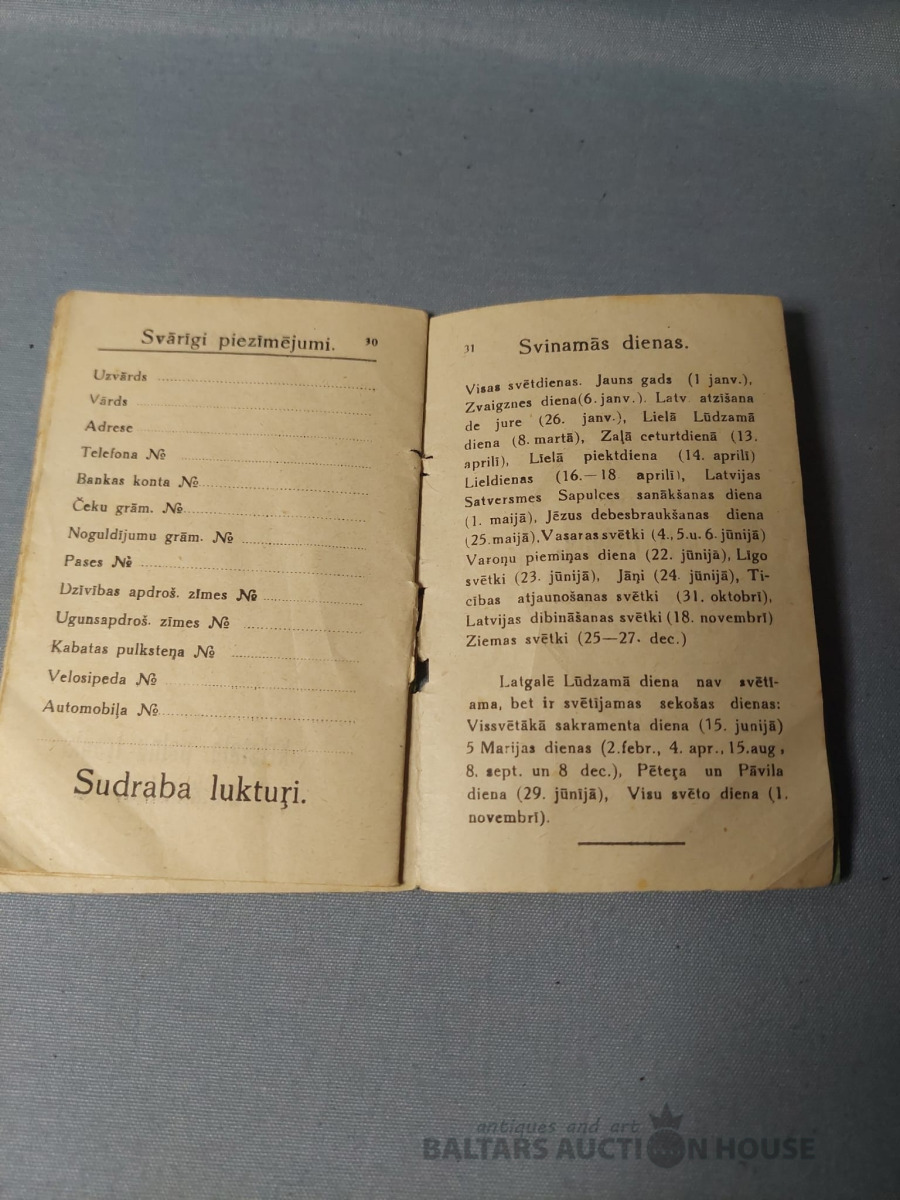 Svārīgi piezīmējumi. 30
Uzvārds
Vārds
Adrese
Telefona №
Bankas konta №
Čeku grām. №
Noguldījumu grām. №
Pases №
Dzīvības apdroš. zīmes №
Ugunsapdroš. zīmes №
Kabatas pulksteņa №
Velosipeda №
Automobiļa №
Sudraba lukturi̧.
31 Svinamās dienas.
Visas svētdienas. Jauns gads (1 janv.),
Zvaigznes diena(6. janv.). Latv atzīšana
de jure (26. janv.), Lielā Lūdzamā
diena (8. martā), Zaļā ceturtdienā (13.
aprilī), Lielā piektdiena (14. aprilī)
Lieldienas (16.—18 aprilī), Latvijas
Satversmes Sapulces sanākšanas diena
(1. maijā), Jēzus debesbraukšanas diena
(25. maijā), Vasaras svētki (4., 5. u. 6. jūnijā)
Varoņu piemiņas diena (22. jūnijā), Līgo
svētki (23. jūnijā), Jāņi (24. jūnijā), Ti-
cības atjaunošanas svētki (31. oktobrī),
Latvijas dibināšanas svētki (18. novembrī)
Ziemas svētki (25—27. dec.)
Latgalē Lūdzamā diena nav svētī-
ama, bet ir svētījamas sekošas dienas:
Vissvētākā sakramenta diena (15. junijā)
5 Marijas dienas (2.febr., 4. apr., 15.aug,
8. sept. un 8 dec.), Pēteŗa un Pāvila
diena (29. jūnijā), Visu svēto diena (1.
novembrī).
antiques and art
BALTARS AUCTION HOUSE